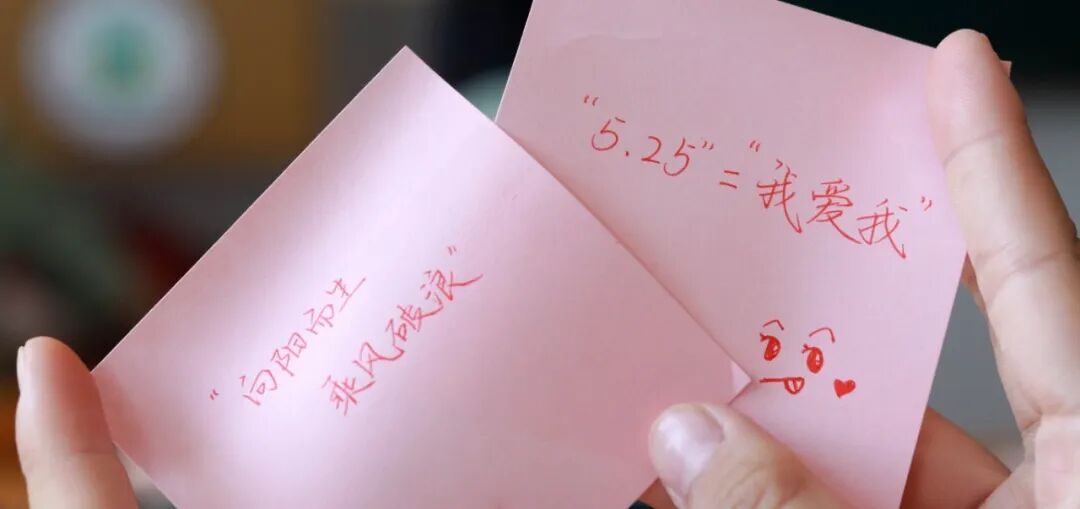 “向阳而生
乘风破浪”
“5.25”=“我爱我”